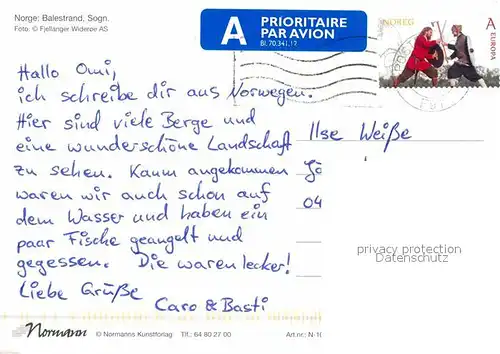 Norge: Balestrand, Sogn.
Foto: © Fjellanger Widerøe AS
A PRIORITAIRE
PAR AVION
Bl.70.341.12
NOREG
A
EUROPA
Hallo Omi,
ich schreibe dir aus Norwegen.
Hier sind viele Berge und
eine wunderschöne Landschaft
zu sehen. Kaum angekommen
waren wir auch schon auf
dem Wasser und haben ein
paar Fische geangelt und
gegessen. Die waren lecker!
Liebe Grüße
Caro & Basti
Ilse Weiße
04
privacy protection
Datenschutz
Normann © Normanns Kunstforlag Tlf.: 64 80 27 00 Art.nr.: N-10